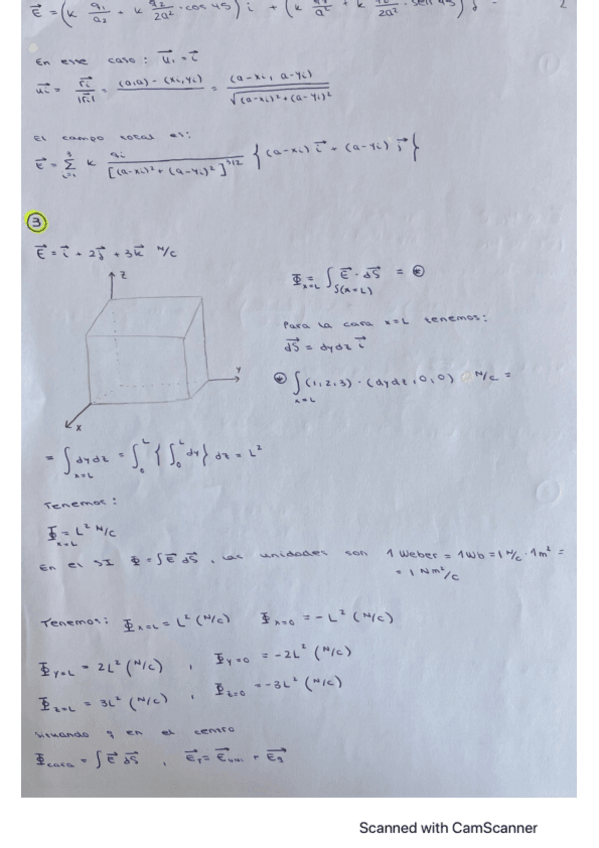 E⃗ = (k q₁/a₂ + k q₂/2a² · cos 45) i + (k /a² + k /2a² · sen 45) j 2
En ese caso: u⃗ᵢ = i⃗
u⃗ᵢ = r⃗ᵢ/|r⃗ᵢ| = (a,a) - (xᵢ,yᵢ) / = (a-xᵢ, a-yᵢ) / √(a-xᵢ)²+(a-yᵢ)²
El campo total es:
E⃗ = Σ k qᵢ / [(a-xᵢ)² + (a-yᵢ)²]^3/2 { (a-xᵢ) i⃗ - (a-yᵢ) j⃗ }
3
E⃗ = i⃗ + 2j⃗ + 3k⃗ N/C
Z
Y
X
Φx=L = ∫S(x=L) E⃗ · dS⃗ = ⊛
Para la cara x=L tenemos:
dS⃗ = dydz i⃗
⊛ ∫x=L (1,2,3) · (dydz,0,0) N/C =
= ∫x=L dydz = ∫₀ᴸ { ∫₀ᴸ dy } dz = L²
Tenemos:
Φx=L = L² N/C
En el SI Φ = ∫E⃗ dS⃗, las unidades son 1 Weber = 1Wb = 1 N/C · 1m² =
= 1 Nm²/C
Tenemos: Φx=L = L² (N/C) Φx=0 = -L² (N/C)
Φy=L = 2L² (N/C) , Φy=0 = -2L² (N/C)
Φz=L = 3L² (N/C) , Φz=0 = -3L² (N/C)
situando q en el centro
Φcara = ∫E⃗ dS⃗ , E⃗T = E⃗uni + E⃗q
Scanned with CamScanner